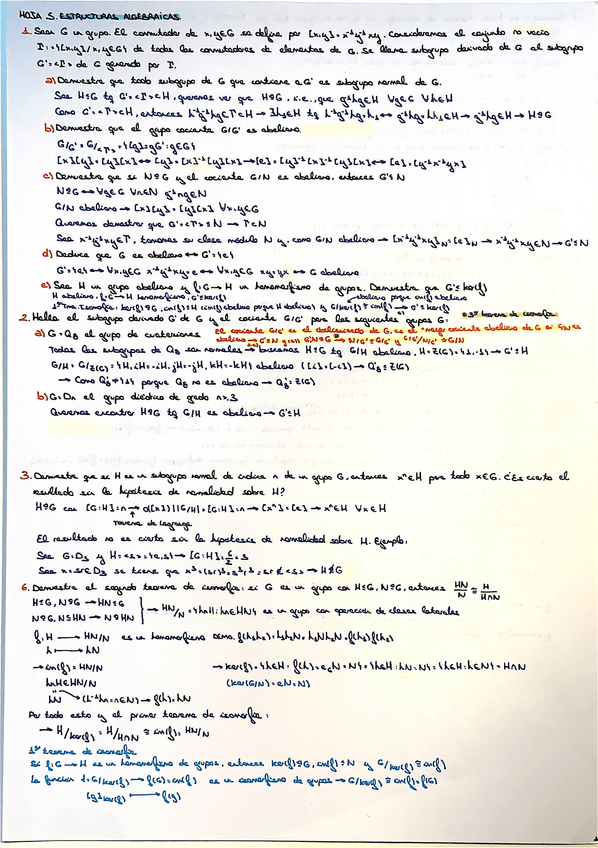 HOJA 5. ESTRUCTURAS ALGEBRAICAS
1. Sea G un grupo. El conmutador de x,y∈G se define por [x,y]=x⁻¹y⁻¹xy. Consideramos el conjunto no vacío
Γ:={[x,y]/x,y∈G} de todos los conmutadores de elementos de G. Se llama subgrupo derivado de G al subgrupo
G'=<Γ> de G generado por Γ.
a) Demuestra que todo subgrupo de G que contiene a G' es subgrupo normal de G.
Sea H≤G tq G'=<Γ>⊂H, queremos ver que H⊴G, i.e., que g⁻¹hg∈H ∀g∈G ∀h∈H
Como G'=<Γ>⊂H, entonces h⁻¹g⁻¹hg∈Γ⊂H → ∃h₁∈H tq h⁻¹g⁻¹hg=h₁ ↔ g⁻¹hg=hh₁∈H → g⁻¹hg∈H → H⊴G
b) Demuestra que el grupo cociente G/G' es abeliano.
G/G'=G/<Γ>={[g]=gG':g∈G}
[x][y]=[y][x] ↔ [y]=[x]⁻¹[y][x] → [e]=[y]⁻¹[x]⁻¹[y][x] ↔ [e]=[y⁻¹x⁻¹yx]
c) Demuestra que si N⊴G y el cociente G/N es abeliano, entonces G'≤N
N⊴G ↔ ∀g∈G ∀n∈N g⁻¹ng∈N
G/N abeliano → [x][y]=[y][x] ∀x,y∈G
Queremos demostrar que G'=<Γ>≤N → Γ⊂N
Sea x⁻¹y⁻¹xy∈Γ, tomamos su clase módulo N y, como G/N abeliano → [x⁻¹y⁻¹xy]N=[e]N → x⁻¹y⁻¹xy∈N → G'≤N
d) Deduce que G es abeliano ↔ G'={e}
G'={e} ↔ ∀x,y∈G x⁻¹y⁻¹xy=e ↔ ∀x,y∈G xy=yx ↔ G abeliano
e) Sea H un grupo abeliano y f:G→H un homomorfismo de grupos. Demuestra que G'≤ker(f)
H abeliano, f:G→H homomorfismo, G'≤ker(f)
2. Halla el subgrupo derivado G' de G y el cociente G/G' para los siguientes grupos G:
3er teorema de isomorfía
a) G=Q₈ el grupo de cuaterniones
El cociente G/G' es el abelianizado de G, es el "mayor cociente abeliano de G"
Todos los subgrupos de Q₈ son normales → buscamos H⊴G tq G/H abeliano, H=Z(G)={1,-1} → G'≤H
G/H=G/Z(G)={H, iH=-iH, jH=-jH, kH=-kH} abeliano → Q₈'≤Z(G)
→ Como Q₈'≠{1} porque Q₈ no es abeliano → Q₈'=Z(G)
b) G=Dn el grupo diédrico de grado n≥3
Queremos encontrar H⊴G tq G/H es abeliano → G'≤H
3. Demuestra que si H es un subgrupo normal de índice n de un grupo G, entonces xⁿ∈H para todo x∈G. ¿Es cierto el
resultado sin la hipótesis de normalidad sobre H?
H⊴G con [G:H]=n → o([x])||G/H|=[G:H]=n → [xⁿ]=[e] → xⁿ∈H ∀x∈H
Teorema de Lagrange
El resultado no es cierto sin la hipótesis de normalidad sobre H. Ejemplo:
Sea G=D₃ y H=<s>={e,s} → [G:H]=6/2=3
6. Demuestra el segundo teorema de isomorfía: si G es un grupo con H≤G, N⊴G, entonces HN/N ≅ H/H∩N
H≤G, N⊴G → HN≤G
N⊴G, N≤HN → N⊴HN
→ HN/N={hnH:hn∈HN} es un grupo con operación de clases laterales
f:H → HN/N es un homomorfismo DEMO. f(h₁h₂)=h₁h₂N=h₁Nh₂N=f(h₁)f(h₂)
h ↦ hN
→ im(f)=HN/N
→ ker(f)={h∈H: f(h)=eₕN=N}={h∈H: hN=N}={h∈H: h∈N}=H∩N
hN∈HN/N
(ker(G/N)=eN=N)
Por todo esto y el primer teorema de isomorfía:
→ H/ker(f)=H/H∩N≅im(f)=HN/N
1er teorema de isomorfía
Si f:G→H es un homomorfismo de grupos, entonces ker(f)⊴G, im(f)≤N y G/ker(f)≅im(f)
La función f:G/ker(f) → f(G)=im(f) es un isomorfismo de grupos → G/ker(f)≅im(f)=f(G)
[g]ker(f) ↦ f(g)